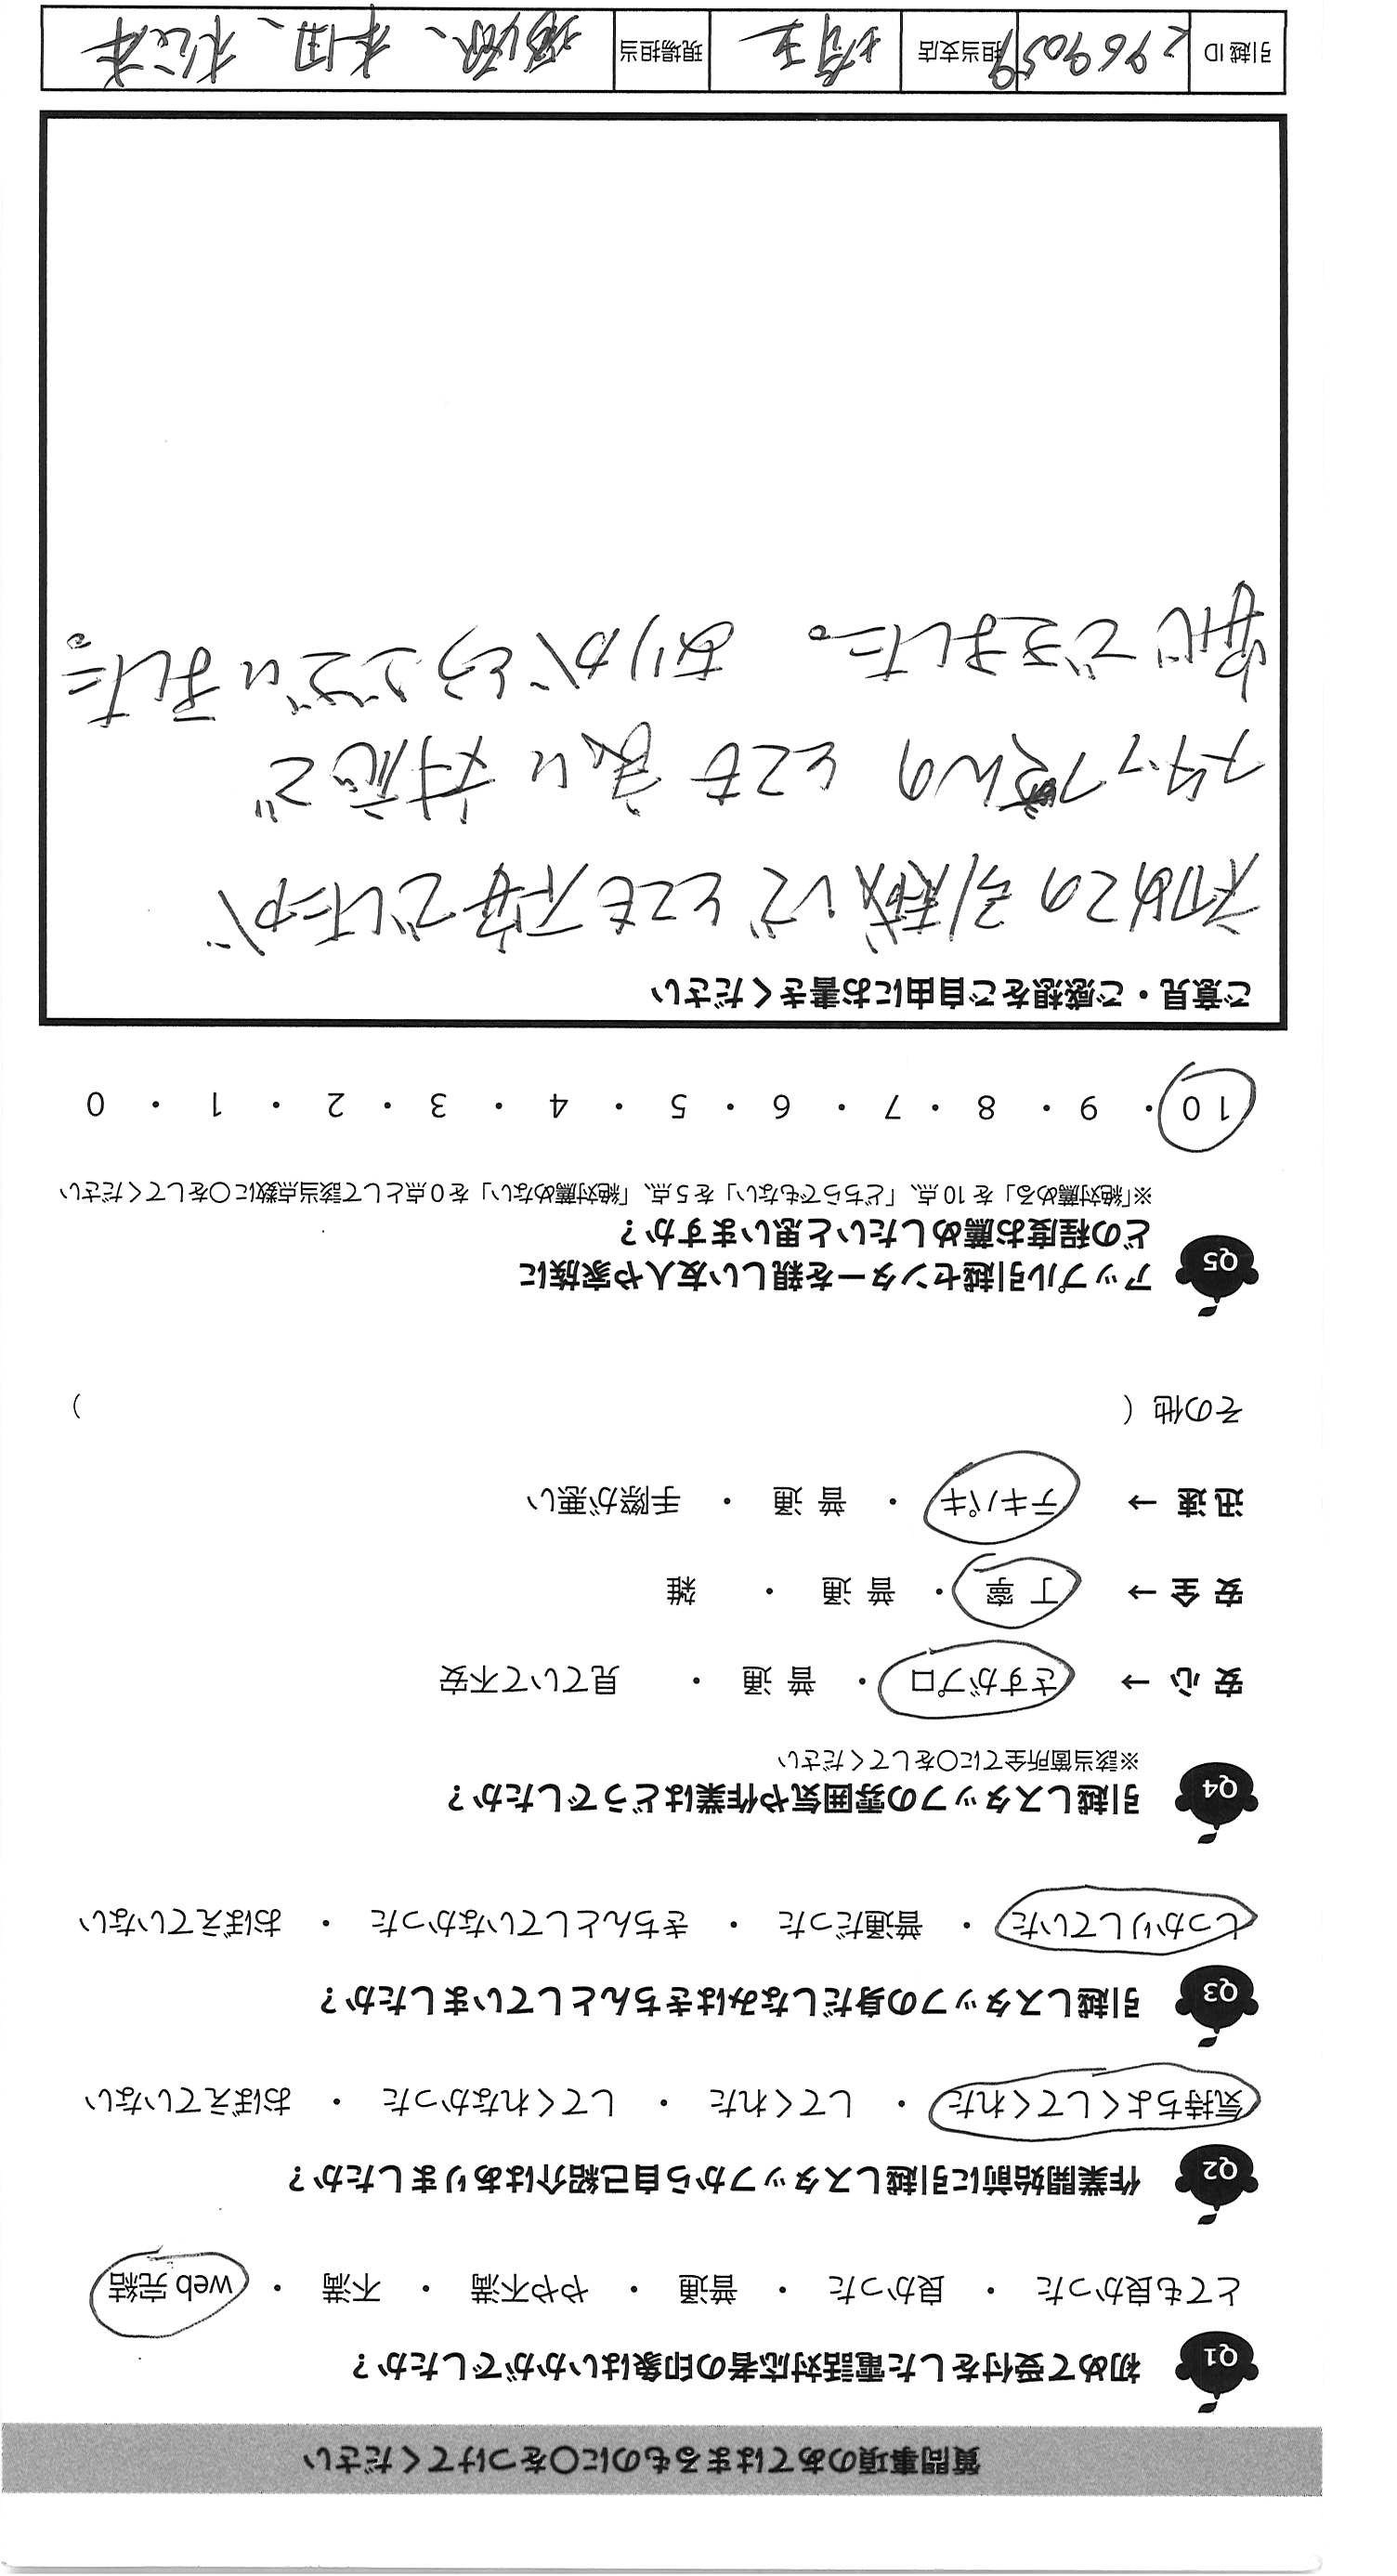 質問事項のあてはまるものに○をつけてください
Q1 初めて受付をした電話対応者の印象はいかがでしたか？
とても良かった ・ 良かった ・ 普通 ・ やや不満 ・ 不満 ・ web 完結
Q2 作業開始前に引越しスタッフから自己紹介はありましたか？
気持ちよくしてくれた ・ してくれた ・ してくれなかった ・ おぼえていない
Q3 引越しスタッフの身だしなみはきちんとしていましたか？
しっかりしていた ・ 普通だった ・ きちんとしていなかった ・ おぼえていない
Q4 引越しスタッフの雰囲気や作業はどうでしたか？
※該当箇所全てに○をしてください
安心 → さすがプロ ・ 普通 ・ 見ていて不安
安全 → 丁寧 ・ 普通 ・ 雑
迅速 → テキパキ ・ 普通 ・ 手際が悪い
その他（ ）
Q5 アップル引越センターを親しい友人や家族に
どの程度お薦めしたいと思いますか？
※「絶対薦める」を 10 点、「どちらでもない」を 5 点、「絶対薦めない」を 0 点として該当点数に○をしてください
10 ・ 9 ・ 8 ・ 7 ・ 6 ・ 5 ・ 4 ・ 3 ・ 2 ・ 1 ・ 0
ご意見・ご感想をご自由にお書きください
初めての引越しでとても不安でしたが
スタッフさんの とても良い対応で
安心できました。 ありがとうございました。
引越 ID 2969059 担当支店 埼玉 現場担当 、本田、松本